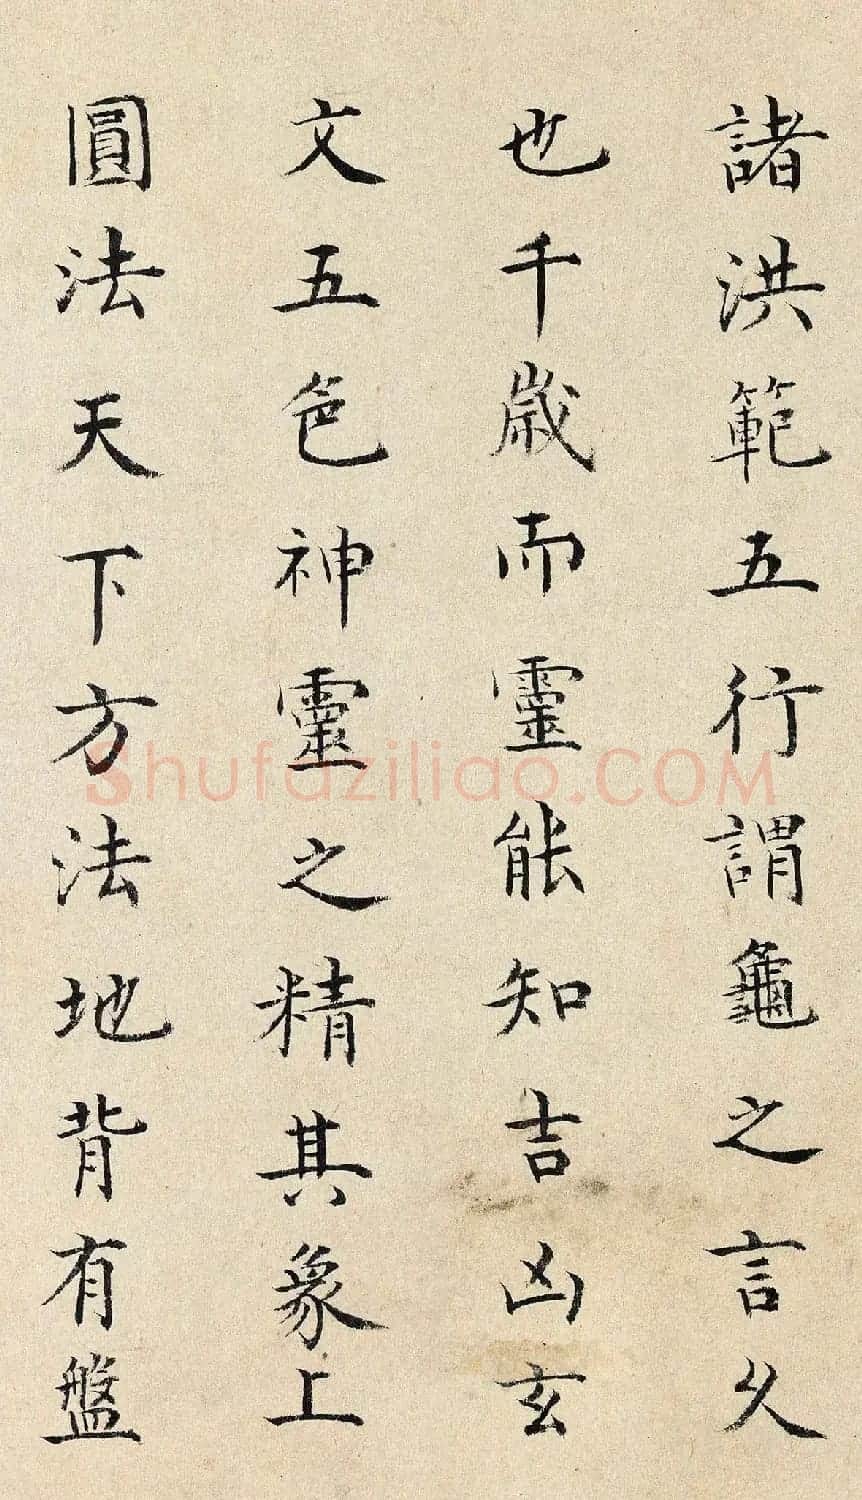 諸洪範五行謂龜之言久
也千歲而靈能知吉凶玄
文五色神靈之精其象上
圓法天下方法地背有盤
Shufaziliao.COM